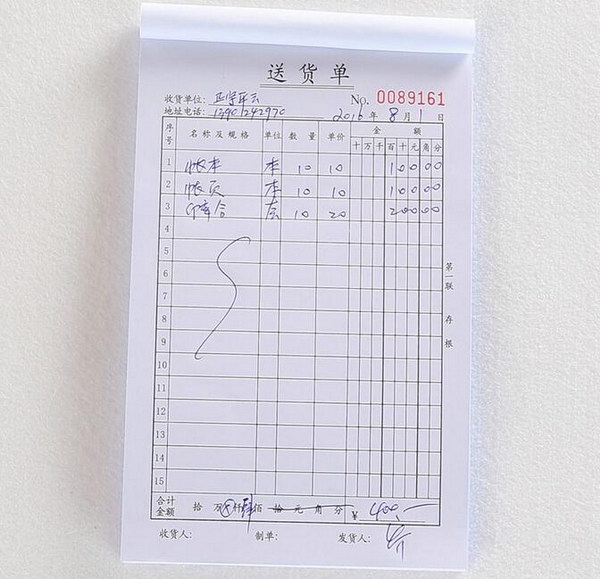 送货单
收货单位:
No. 0089161
地址电话: 13901242970
2016年8月1日
序号 名称及规格 单位 数量 单价 金额
十万千百十元角分
1 帐本 本 10 10 10000
2 帐页 本 10 10 10000
3 10 20 20000
4
5
6
7
8
9
10
11
12
13
14
15
第一联 存根
合计金额 拾万仟肆佰拾元角分 ¥ 400.—
收货人: 制单: 发货人: